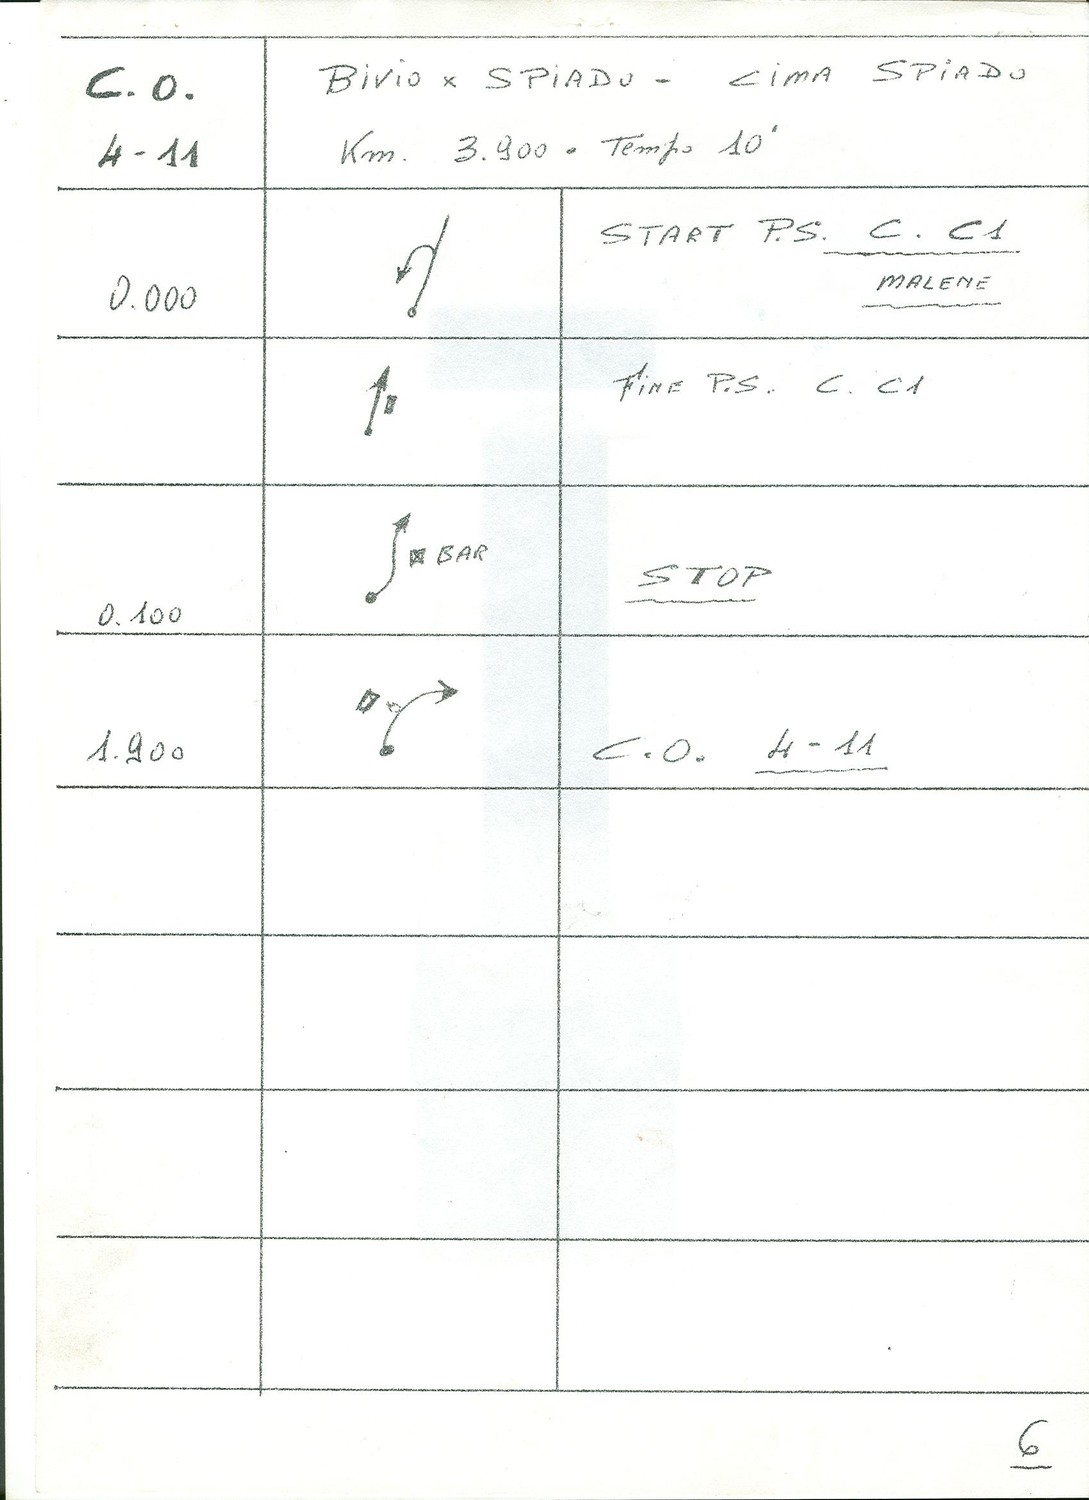 C. O.
4-11
BIVIO x SPIADO - CIMA SPIADO
Km. 3.900 . Tempo 10'
START P.S. C. C1
MALENE
0.000
FINE P.S. C. C1
BAR
STOP
0.100
1.900
C.O. 4-11
6